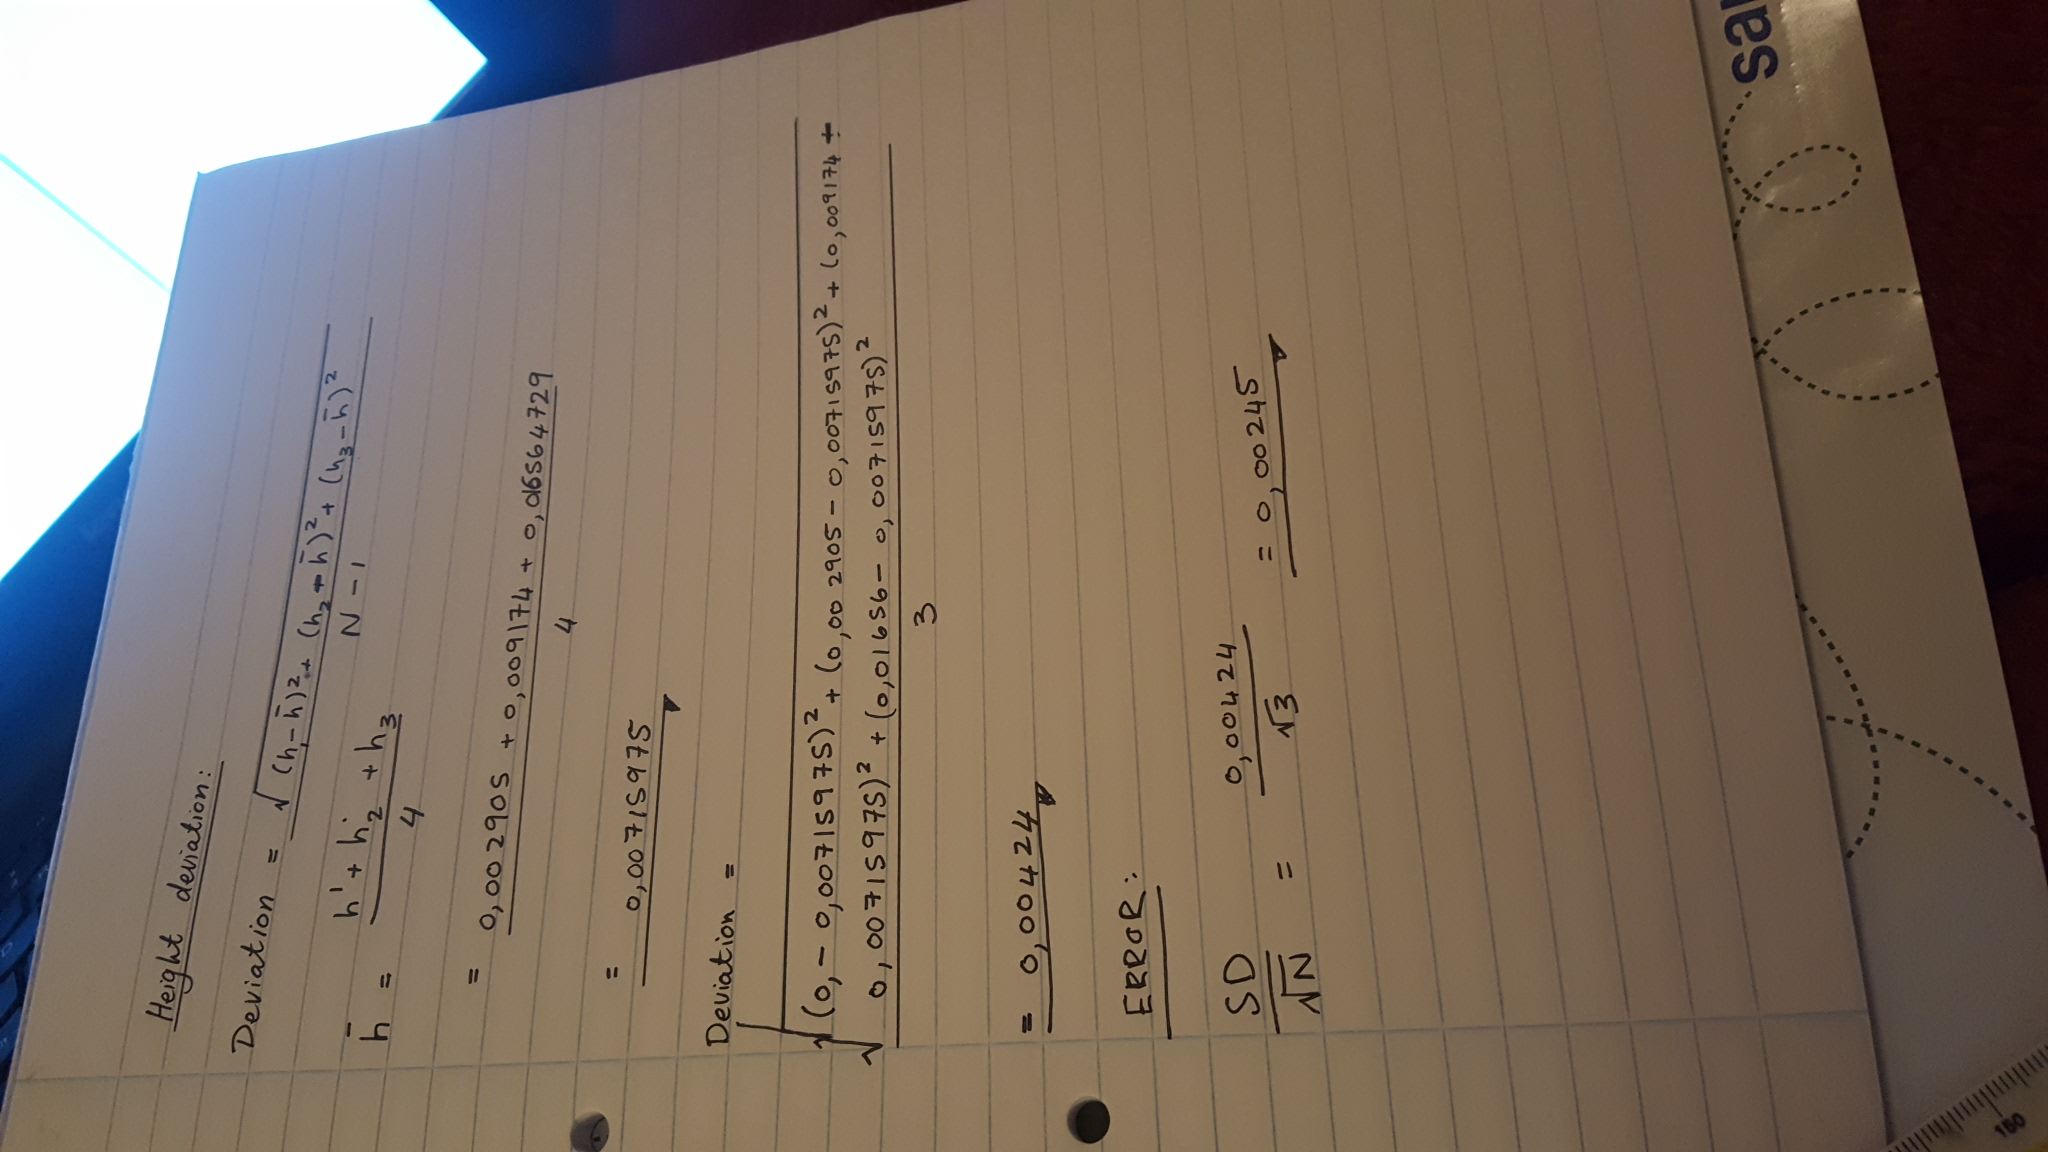 Height deviation:
Deviation = √(h₁-h̄)² + (h₂+h̄)² + (h₃-h̄)²
N-1
h̄ = h'+h₂+h₃
4
= 0,002905 + 0,009174 + 0,016564729
4
= 0,00715975
Deviation =
√(0,-0,00715975)² + (0,002905-0,00715975)² + (0,009174+
√0,00715975)² + (0,01656-0,00715975)²
3
= 0,00424
ERROR:
SD = 0,00424 = 0,00245
√N √3
sai
150